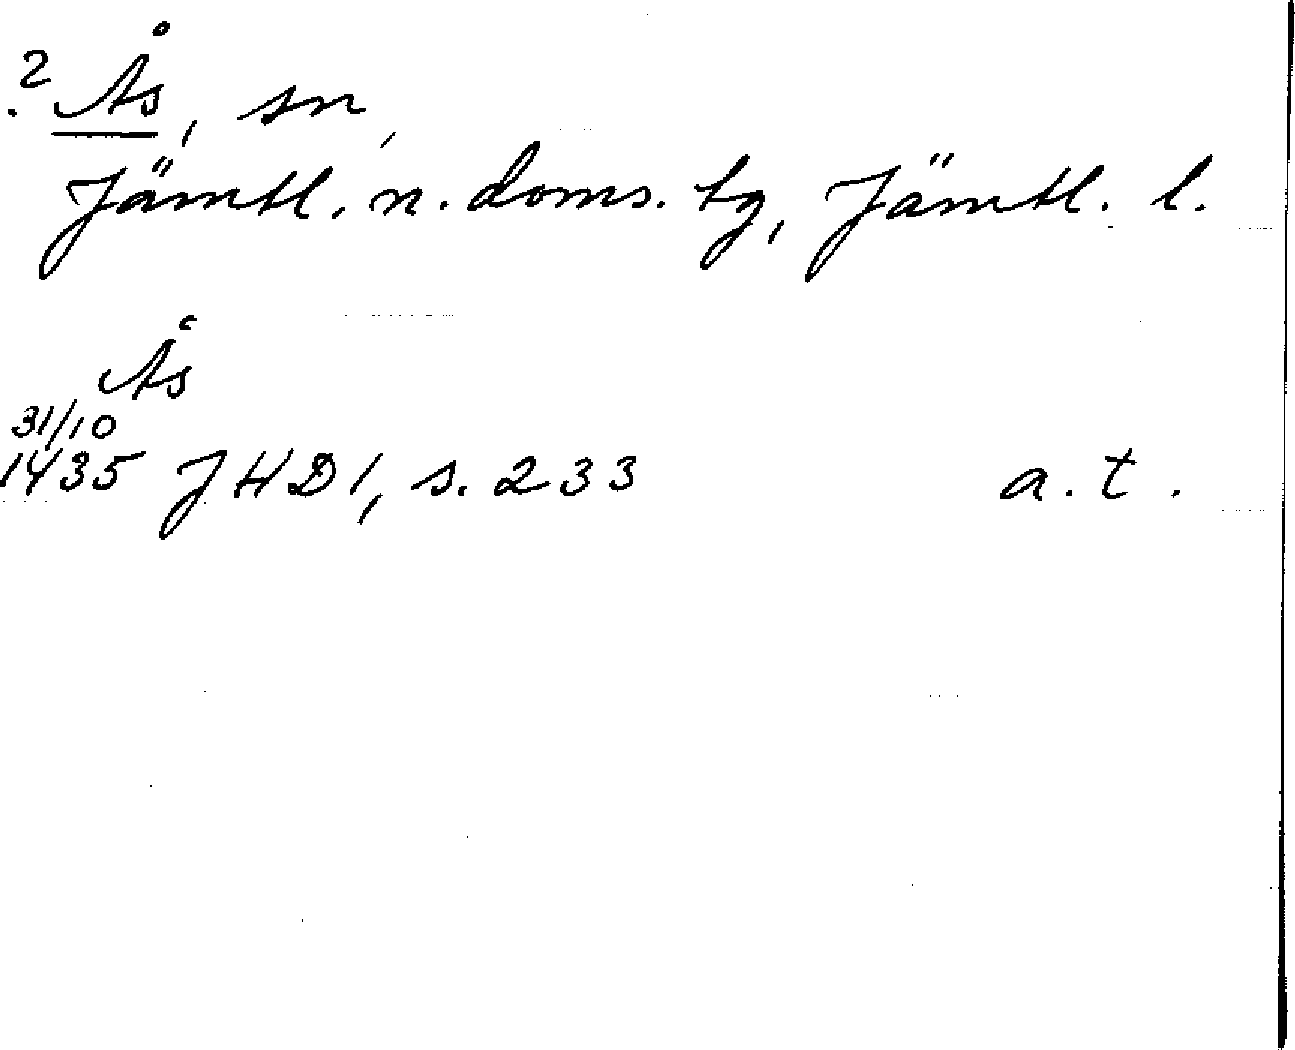 ? Ås, sn,
Jämtl. n. doms. tg, Jämtl. l.
Ås
31/10
1435 JHD 1, s. 233 a. t.